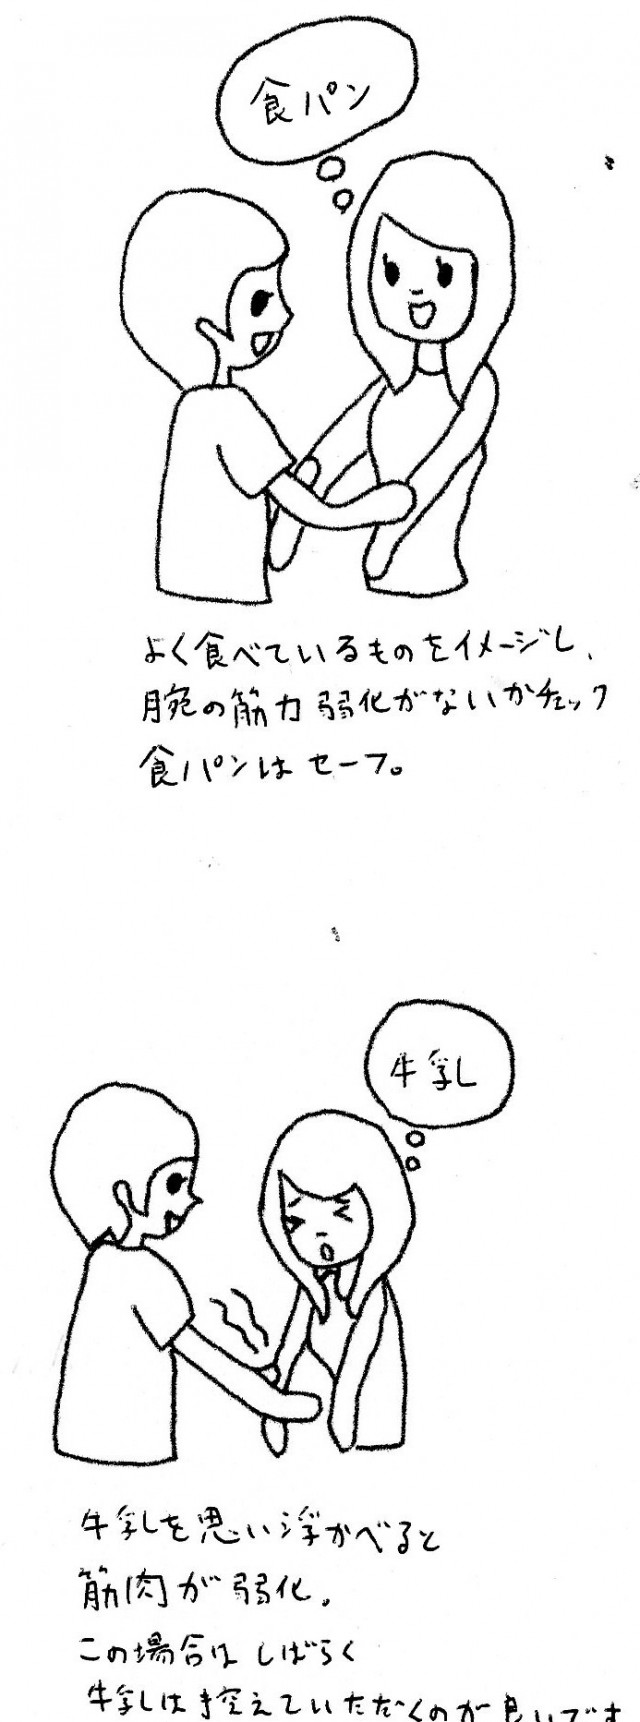 食パン
よく食べているものをイメージし、
腕の筋力弱化がないかチェック
食パンはセーフ。
牛乳
牛乳を思い浮かべると
筋肉が弱化。
この場合はしばらく
牛乳は控えていただくのが良いです